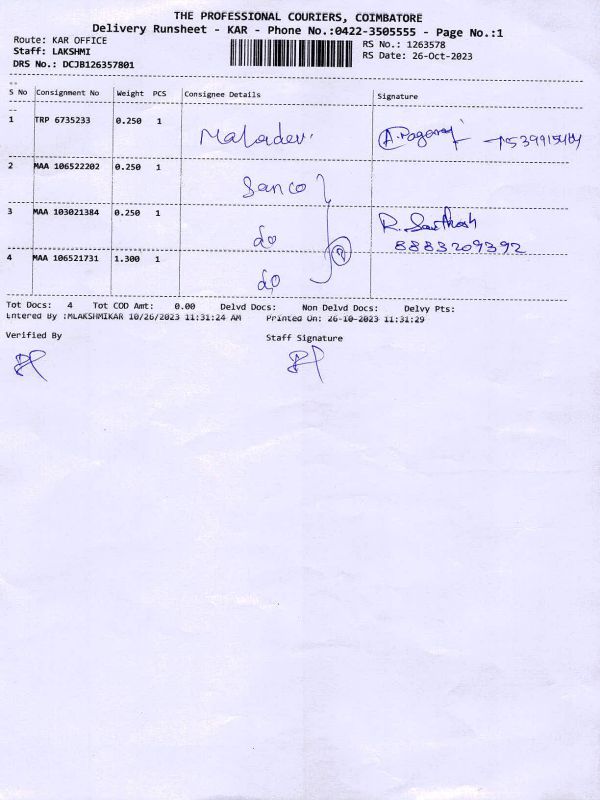 THE PROFESSIONAL COURIERS, COIMBATORE
Delivery Runsheet - KAR - Phone No.:0422-3505555 - Page No.:1
Route: KAR OFFICE
RS No.: 1263578
Staff: LAKSHMI
RS Date: 26-Oct-2023
DRS No.: DCJB126357801
S No Consignment No Weight PCS Consignee Details Signature
1 TRP 6735233 0.250 1 Maladevi
2 MAA 106522202 0.250 1 Sanco
3 MAA 103021384 0.250 1 do R. Santhosh
8883209392
4 MAA 106521731 1.300 1 do
Tot Docs: 4 Tot COD Amt: 0.00 Delvd Docs: Non Delvd Docs: Delvy Pts:
Entered By :MLAKSHMIKAR 10/26/2023 11:31:24 AM Printed On: 26-10-2023 11:31:29
Verified By
Staff Signature